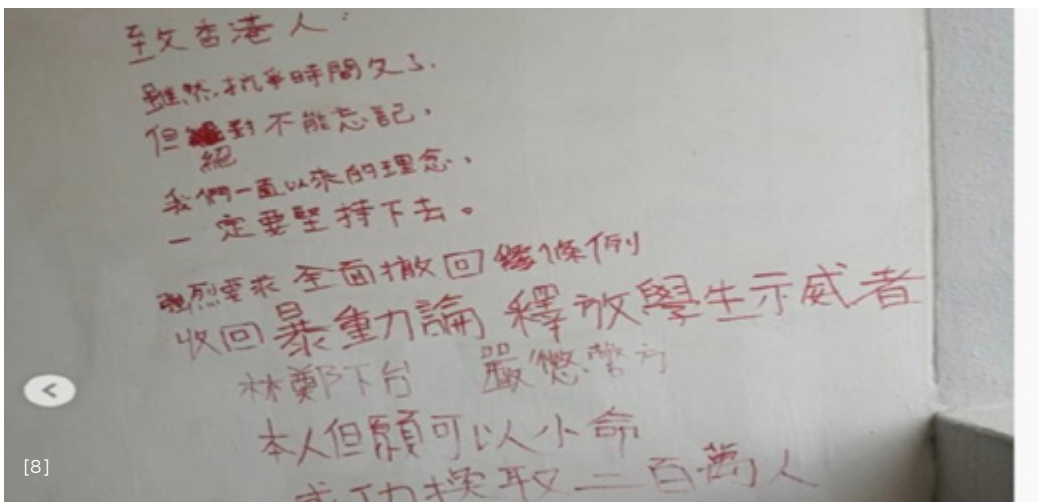 至攵香港人：
雖然抗爭時間久了.
但絕對不能忘記，
我們一直以來的理念，
一定要堅持下去。
強烈要求 全面撤回 條例
收回暴動論 釋放學生示威者
林鄭下台 嚴懲警方
本人但願可以小命
成功換取二百萬人
[8]